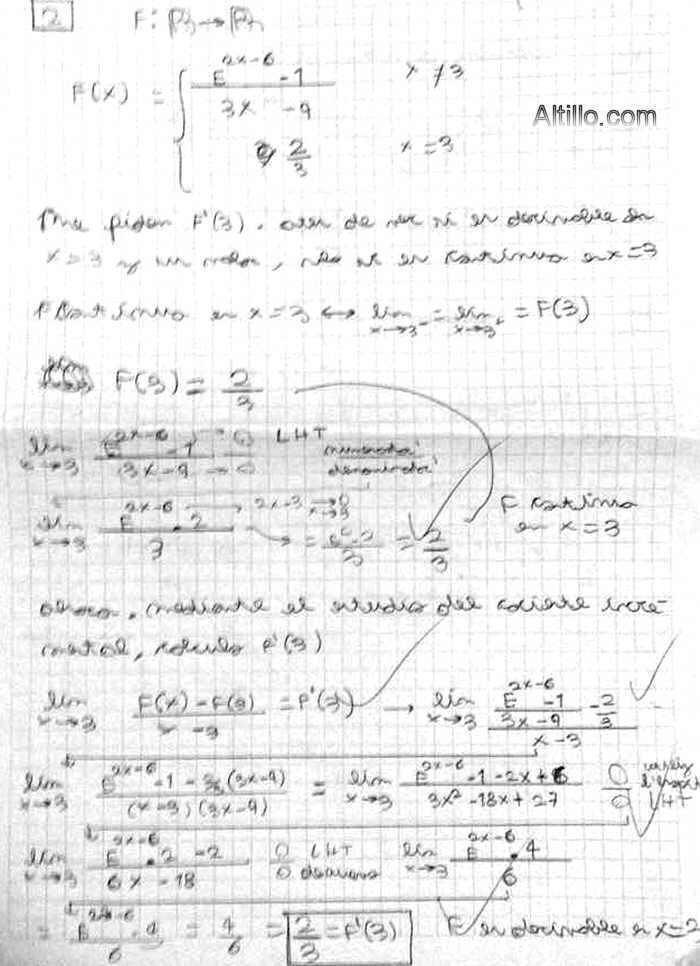 2 F: R → R
F(x) = { E^(2x-6) - 1 / 3x - 9 x ≠ 3
Altillo.com
2/3 x = 3
me piden F'(3), de ver si es derivable en
x = 3 y su valor, veo si es continua en x=3
F continua en x = 3 ↔ lim x→3⁻ = lim x→3⁺ = F(3)
F(3) = 2/3
lim x→3 E^(2x-6) - 1 → 0 / 3x - 9 → 0 LHT numerador' / denominador'
lim x→3 E^(2x-6) . 2 / 3 = 2/3 F continua
en x = 3
ahora, mediante el estudio del cociente incre
mental, calculo F'(3)
lim x→3 F(x) - F(3) / x - 3 = F'(3) → lim x→3 E^(2x-6) - 1 / 3x - 9 - 2/3 / x - 3
lim x→3 E^(2x-6) - 1 - 2/3 (3x-9) / (x-3)(3x-9) = lim x→3 E^(2x-6) - 1 - 2x + 6 / 3x² - 18x + 27 0/0 LHT
lim x→3 E^(2x-6) . 2 - 2 / 6x - 18 0/0 LHT lim x→3 E^(2x-6) . 4 / 6
= E^(2x-6) . 4 / 6 = 4/6 = 2/3 = F'(3) F es derivable en x=2